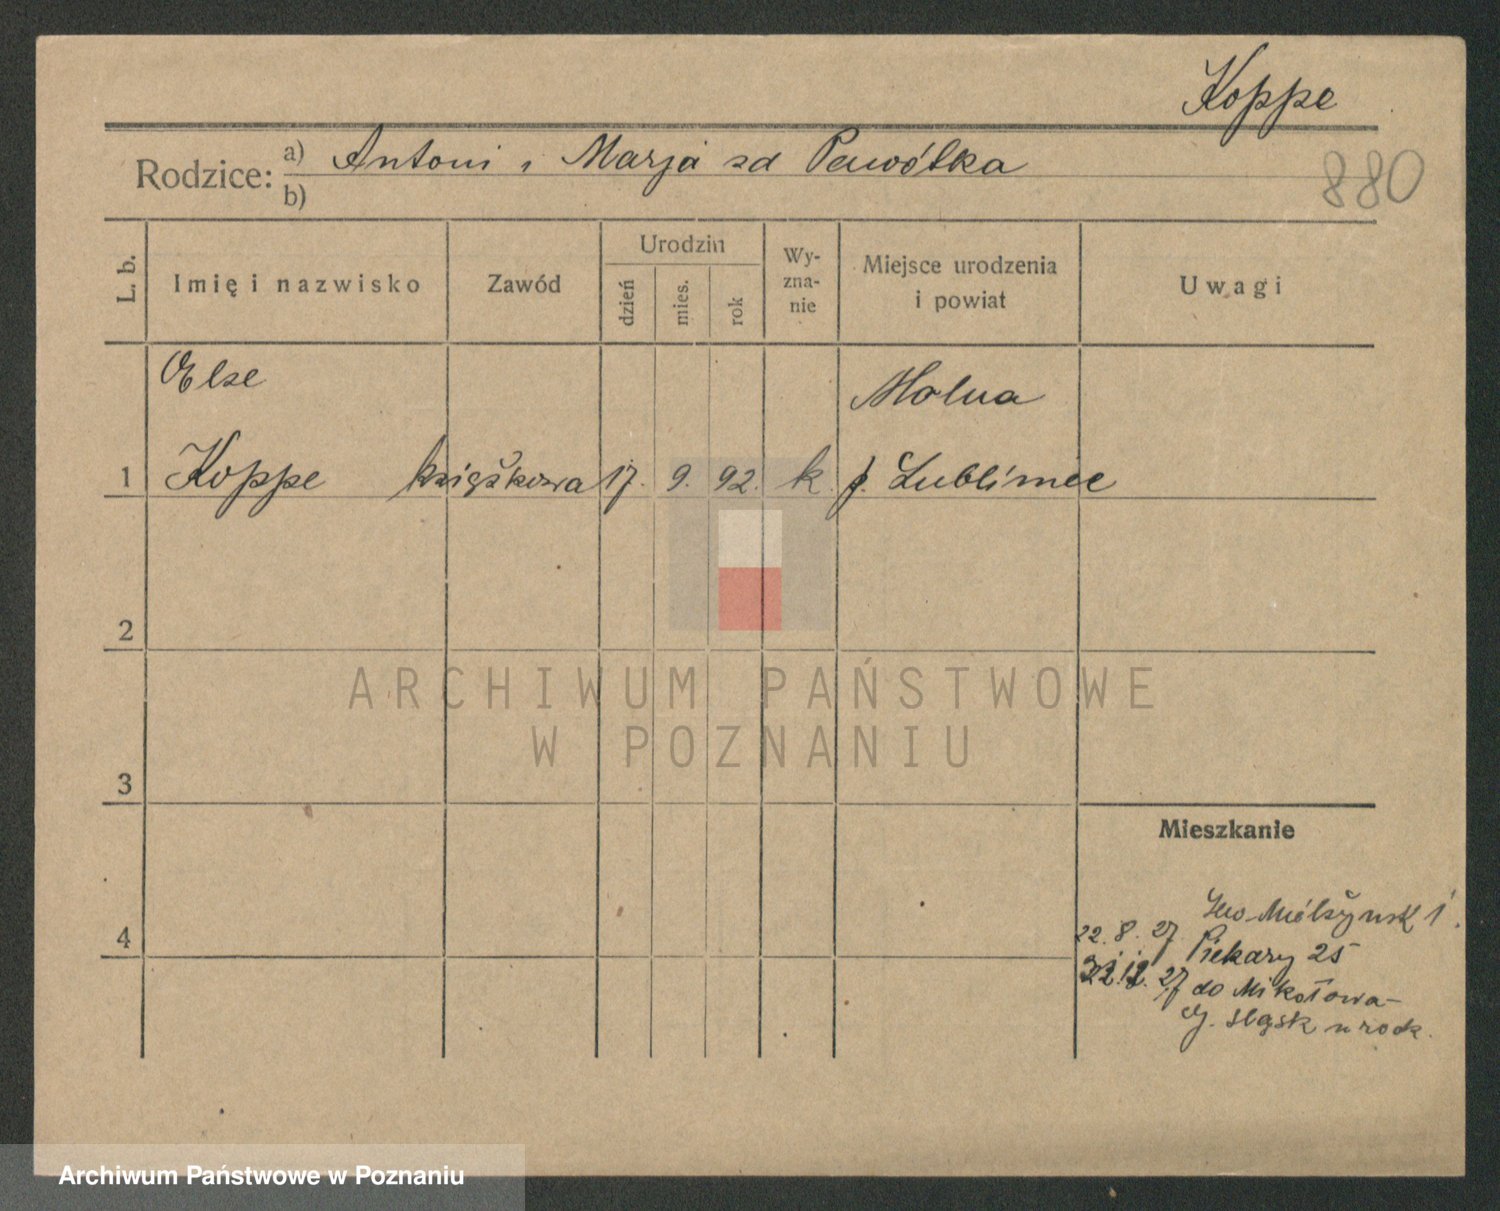 Koppe
Rodzice: a) Antoni i Marja zd Pawółka
b)
880
L. b.
Imię i nazwisko
Zawód
Urodzin
dzień
mies.
rok
Wy-
zna-
nie
Miejsce urodzenia
i powiat
Uwagi
Else
Molna
1 Koppe książkowa 17. 9. 92. k. p. Lubliniec
2
ARCHIWUM PAŃSTWOWE
W POZNANIU
3
Mieszkanie
4
Mielżyńsk 1.
22. 8. 27. Piekary 25
27 do Mikołowa-
G. Śląsk u rodz.
Archiwum Państwowe w Poznaniu